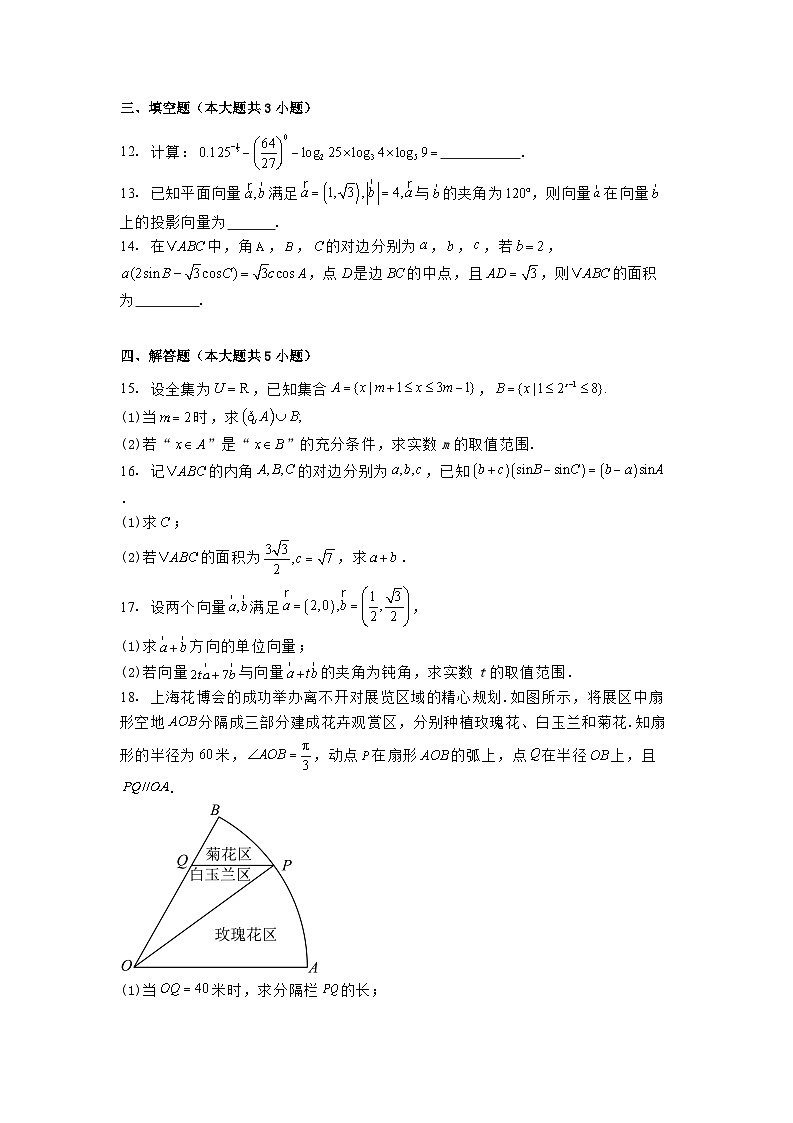 三、填空题（本大题共3小题）
12. 计算：0.125^{-1/3} − (64/27)^0 − log₂ 25×log₃ 4×log₅ 9 = ________.
13. 已知平面向量a,b满足a = (1,√3),|b| = 4,a与b的夹角为120°，则向量a在向量b
上的投影向量为______.
14. 在∨ABC中，角A，B，C的对边分别为a，b，c，若b = 2，
a(2sin B − √3 cosC) = √3c cos A，点D是边BC的中点，且AD = √3，则∨ABC的面积
为________.
四、解答题（本大题共5小题）
15. 设全集为U = R，已知集合A = {x | m+1 ≤ x ≤ 3m−1}，B = {x |1 ≤ 2^{x−1} ≤ 8}.
(1)当m = 2时，求(ð_U A)∪B;
(2)若“x∈A”是“x∈B”的充分条件，求实数m的取值范围.
16. 记∨ABC的内角A,B,C的对边分别为a,b,c，已知(b+c)(sinB−sinC) = (b−a)sinA
.
(1)求C；
(2)若∨ABC的面积为3√3/2,c = √7，求a+b.
17. 设两个向量a,b满足a = (2,0),b = (1/2,√3/2)，
(1)求a+b方向的单位向量；
(2)若向量2ta+7b与向量a+tb的夹角为钝角，求实数t的取值范围.
18. 上海花博会的成功举办离不开对展览区域的精心规划.如图所示，将展区中扇
形空地AOB分隔成三部分建成花卉观赏区，分别种植玫瑰花、白玉兰和菊花.知扇
形的半径为60米，∠AOB = π/3，动点P在扇形AOB的弧上，点Q在半径OB上，且
PQ//OA.
B
菊花区
Q P
白玉兰区
玫瑰花区
O A
(1)当OQ = 40米时，求分隔栏PQ的长；